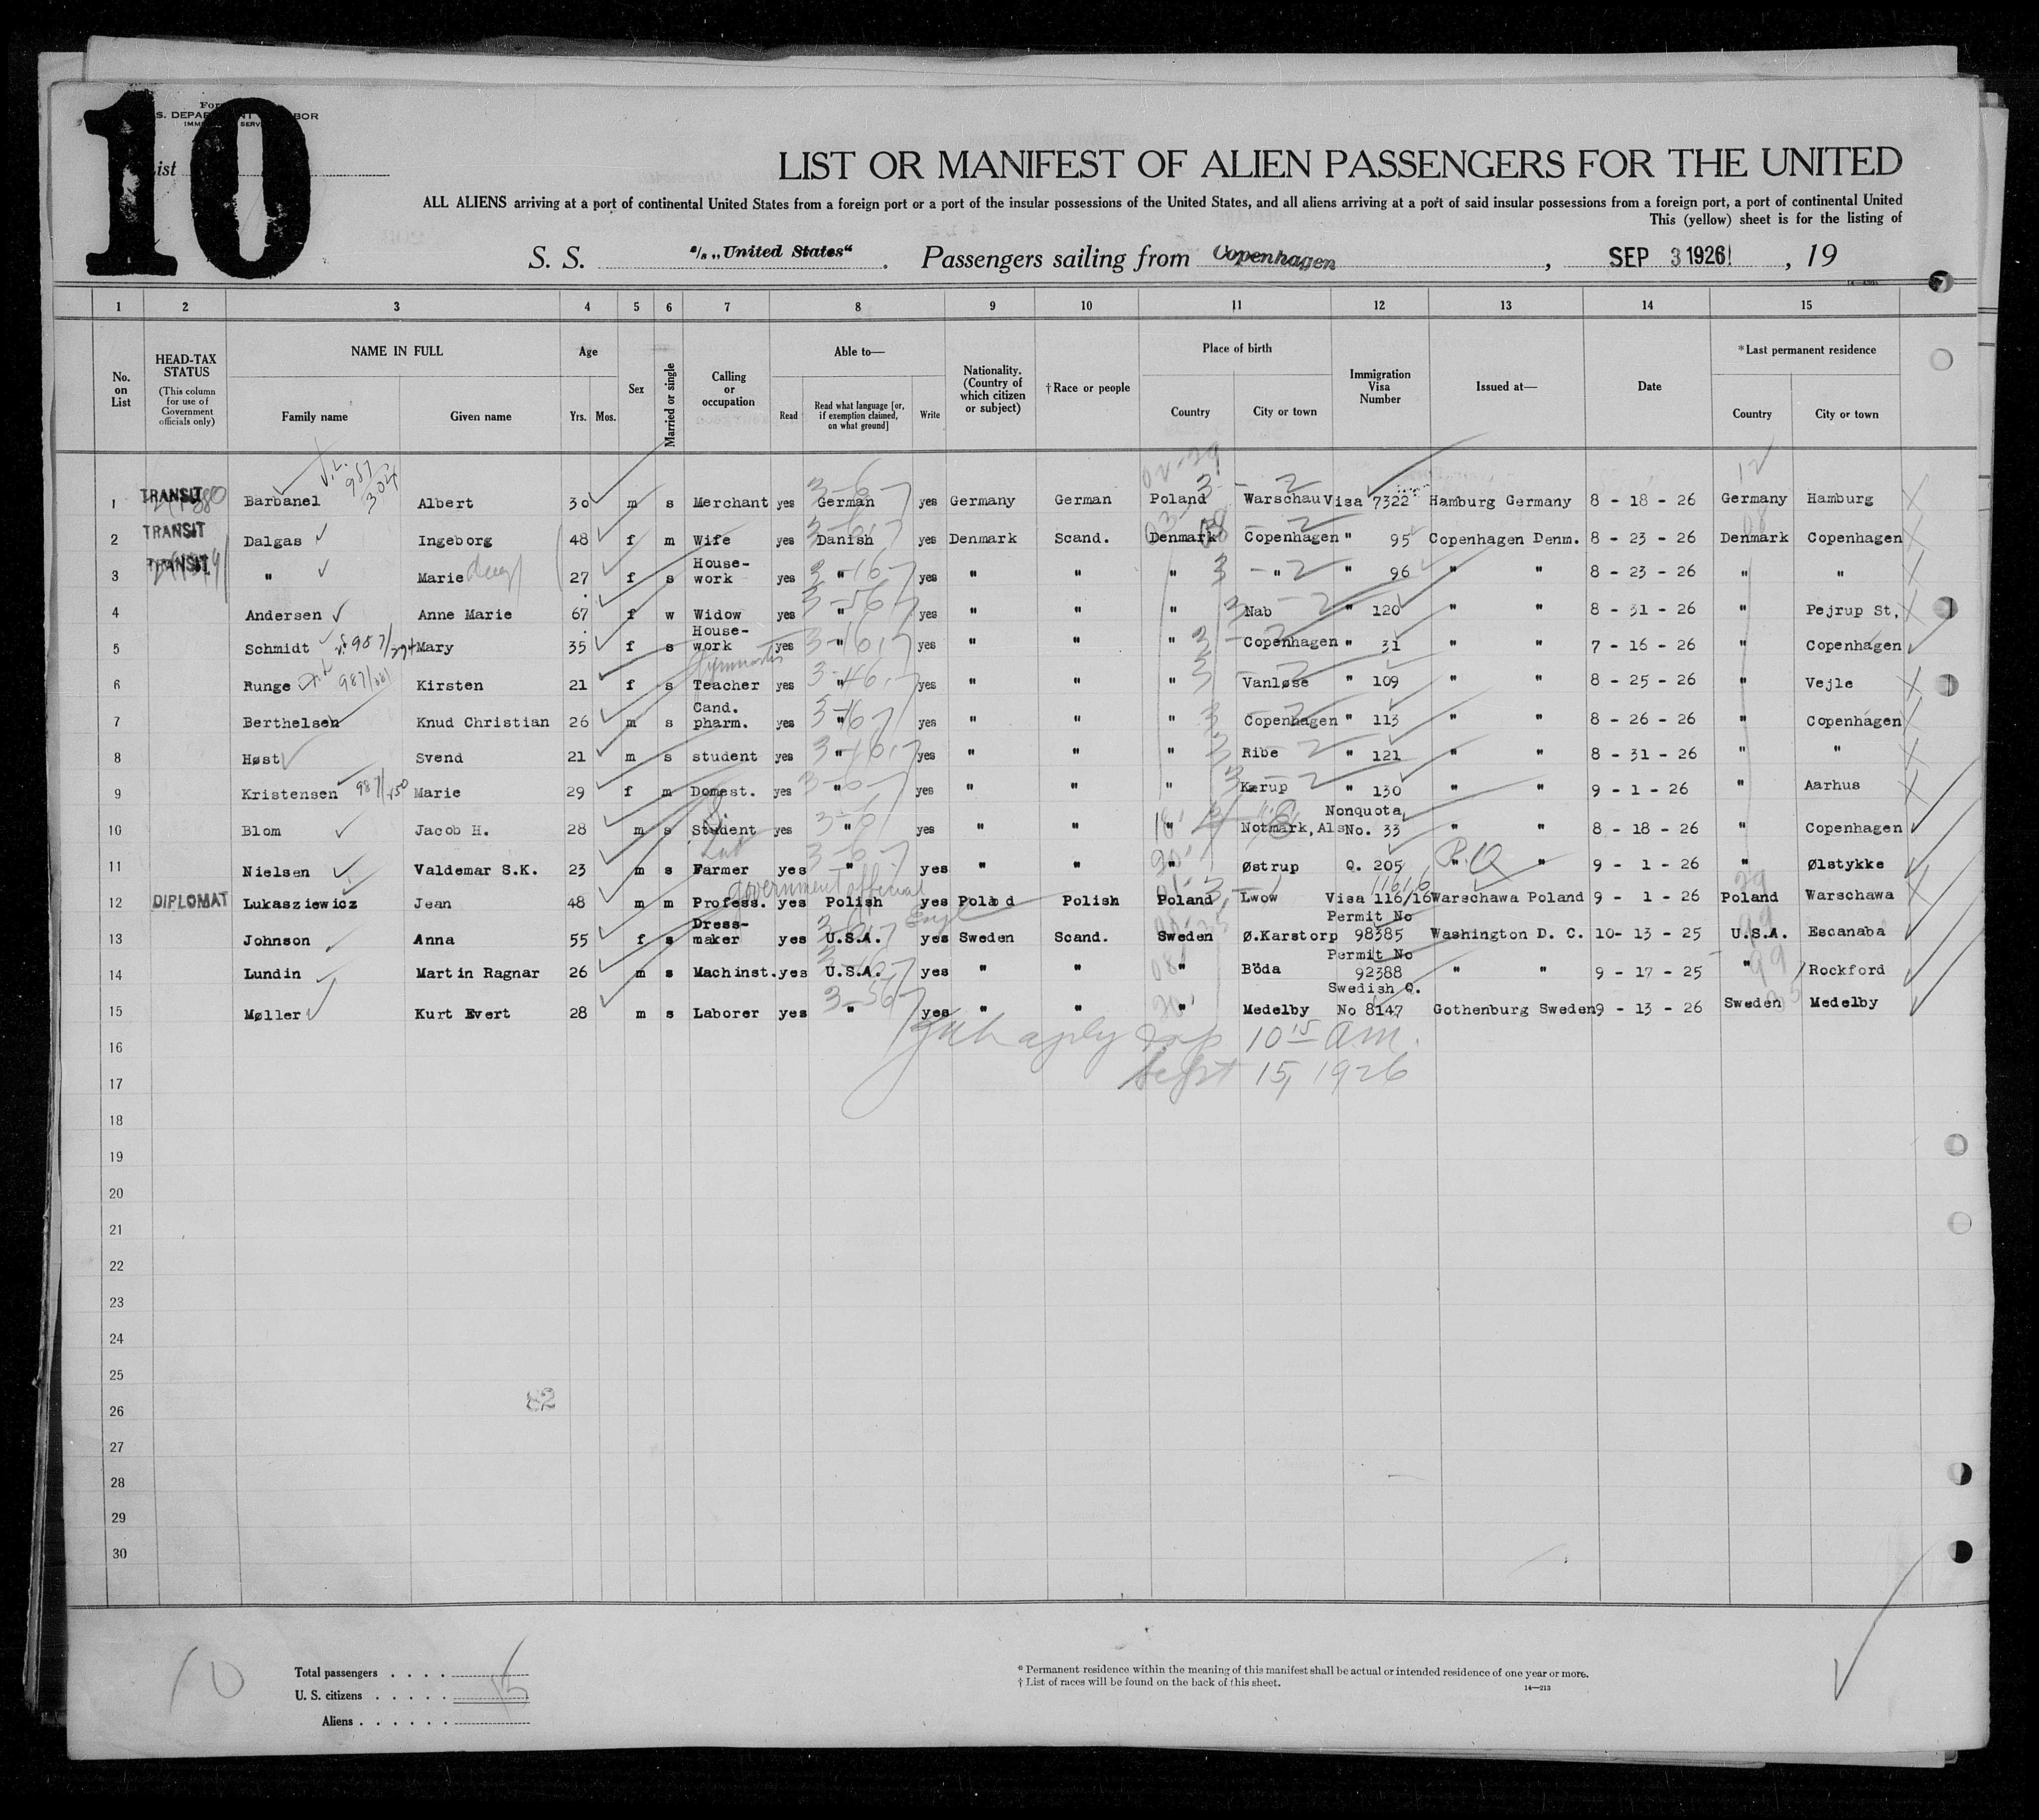 10
Form
S. DEPARTMENT LABOR
IMMI SERV
List
LIST OR MANIFEST OF ALIEN PASSENGERS FOR THE UNITED
ALL ALIENS arriving at a port of continental United States from a foreign port or a port of the insular possessions of the United States, and all aliens arriving at a port of said insular possessions from a foreign port, a port of continental United
This (yellow) sheet is for the listing of
S. S. s/s „United States“ . Passengers sailing from Copenhagen , SEP 3 1926 , 19
1 2 3 4 5 6 7 8 9 10 11 12 13 14 15
No. on List
HEAD-TAX STATUS (This column for use of Government officials only)
NAME IN FULL Family name Given name
Age Yrs. Mos.
Sex
Married or single
Calling or occupation
Able to— Read Read what language [or, if exemption claimed, on what ground] Write
Nationality. (Country of which citizen or subject)
†Race or people
Place of birth Country City or town
Immigration Visa Number
Issued at—
Date
*Last permanent residence Country City or town
1 TRANSIT Barbanel 987/304 Albert 30 m s Merchant yes German yes Germany German Poland Warschau Visa 7322 Hamburg Germany 8 - 18 - 26 Germany Hamburg
2 TRANSIT Dalgas Ingeborg 48 f m Wife yes Danish yes Denmark Scand. Denmark Copenhagen " 95 Copenhagen Denm. 8 - 23 - 26 Denmark Copenhagen
3 TRANSIT " Marie 27 f s House-work yes " yes " " " " " 96 " " 8 - 23 - 26 " "
4 Andersen Anne Marie 67 f w Widow yes " yes " " " Nab " 120 " " 8 - 31 - 26 " Pejrup St,
5 Schmidt Mary 35 f s House-work yes " yes " " " Copenhagen " 31 " " 7 - 16 - 26 " Copenhagen
6 Runge Kirsten 21 f s Teacher yes " yes " " " Vanløse " 109 " " 8 - 25 - 26 " Vejle
7 Berthelsen Knud Christian 26 m s Cand. pharm. yes " yes " " " Copenhagen " 113 " " 8 - 26 - 26 " Copenhagen
8 Høst Svend 21 m s student yes " yes " " " Ribe " 121 " " 8 - 31 - 26 " "
9 Kristensen Marie 29 f m Domest. yes " yes " " " Kærup " 130 " " 9 - 1 - 26 " Aarhus
10 Blom Jacob H. 28 m s Student yes " yes " " " Notmark, Als Nonquota No. 33 " " 8 - 18 - 26 " Copenhagen
11 Nielsen Valdemar S.K. 23 m s Farmer yes " yes " " " Østrup Q. 205 " " 9 - 1 - 26 " Ølstykke
12 DIPLOMAT Lukasziewicz Jean 48 m m Profess. Government official yes Polish yes Poland Polish Poland Lwow Visa 116/16 Warschawa Poland 9 - 1 - 26 Poland Warschawa
13 Johnson Anna 55 f s Dress-maker yes U.S.A. yes Sweden Scand. Sweden Ø.Karstorp Permit No 98385 Washington D. C. 10- 13 - 25 U.S.A. Escanaba
14 Lundin Martin Ragnar 26 m s Machinst. yes U.S.A. yes " " " Böda Permit No 92388 " " 9 - 17 - 25 " Rockford
15 Møller Kurt Evert 28 m s Laborer yes " yes " " " Medelby Swedish Q. No 8147 Gothenburg Sweden 9 - 13 - 26 Sweden Medelby
16 10 15 am.
17 Sept 15, 1926
18
19
20
21
22
23
24
25
26 82
27
28
29
30
10
Total passengers . . . . 15
U. S. citizens . . . . .
Aliens . . . . . .
* Permanent residence within the meaning of this manifest shall be actual or intended residence of one year or more.
† List of races will be found on the back of this sheet.
14—213